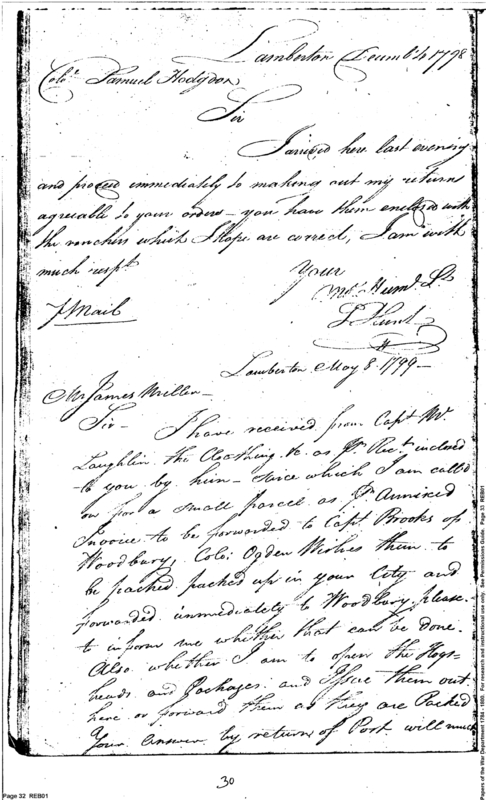 Lamberton Decemb. 4 1798
Colo. Samuel Hodgdon
Sir
I arrived here last evening
and proceed immediately to making out my returns
agreable to your orders - you have them enclosed with
the vouchers which I hope are correct, I am with
much respt.
Your
Mot. Huml. St.
J Hunt
Mail
Lamberton May 8. 1799 -
Mr James Miller -
Sir - I have received from Capt Mc
Laughlin the Cloathing &c. as pr. Rect. inclosed
to you by him - since which I am call'd
on for a small parcel as pr. Annexed
Invoice to be forwarded to Capt Brooks of
Woodbury, Colo: Ogden Wishes them to
be packed packed up in your City and
forwarded immediately to Woodbury, please
to inform me whether that can be done.
Also whether I am to open the Hogs-
heads and Packages and Issue them out
here or forward them as they are Packed
Your answer by return of Post will much
30
Page 32 REB01
Papers of the War Department 1784 - 1800. For research and instructional use only. See Permissions Guide. Page 33 REB01